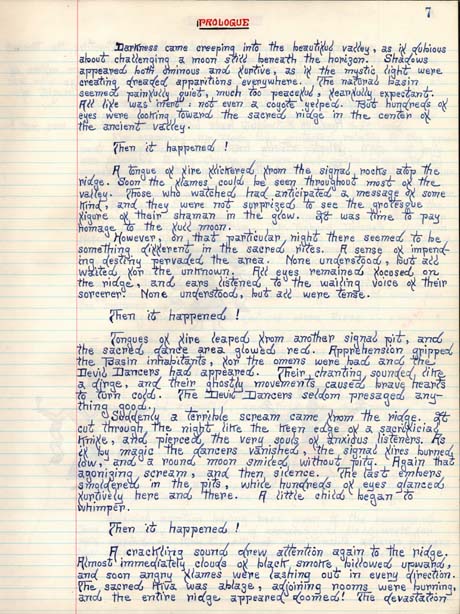 7
PROLOGUE
Darkness came creeping into the beautiful valley, as if dubious
about challenging a moon still beneath the horizon. Shadows
appeared both ominous and furtive, as if the mystic light were
creating dreaded apparitions everywhere. The natural basin
seemed painfully quiet, much too peaceful, fearfully expectant.
All life was inert: not even a coyote yelped. But hundreds of
eyes were looking toward the sacred ridge in the center of
the ancient valley.
Then it happened!
A tongue of fire flickered from the signal rocks atop the
ridge. Soon the flames could be seen throughout most of the
valley. Those who watched had anticipated a message of some
kind, and they were not surprized to see the grotesque
figure of their shaman in the glow. It was time to pay
homage to the full moon.
However, on that particular night there seemed to be
something different in the sacred rites. A sense of impend-
ing destiny pervaded the area. None understood, but all
waited for the unknown. All eyes remained focused on
the ridge, and ears listened to the wailing voice of their
sorcerer. None understood, but all were tense.
Then it happened!
Tongues of fire leaped from another signal pit, and
the sacred dance area glowed red. Apprehension gripped
the Basin inhabitants, for the omens were bad and the
Devil Dancers had appeared. Their chanting sounded like
a dirge, and their ghostly movements caused brave hearts
to turn cold. The Devil Dancers seldom presaged any-
thing good.
Suddenly a terrible scream came from the ridge. It
cut through the night like the keen edge of a sacrificial
knife, and pierced the very souls of anxious listeners. As
if by magic the dancers vanished, the signal fires burned
low, and a round moon smiled without pity. Again that
agonizing scream, and then silence. The last embers
smoldered in the pits, while hundreds of eyes glanced
furtively here and there. A little child began to
whimper.
Then it happened!
A crackling sound drew attention again to the ridge.
Almost immediately clouds of black smoke billowed upward,
and soon angry flames were lashing out in every direction.
The sacred Kiva was ablaze, adjoining rooms were burning,
and the entire ridge appeared doomed! The devastation